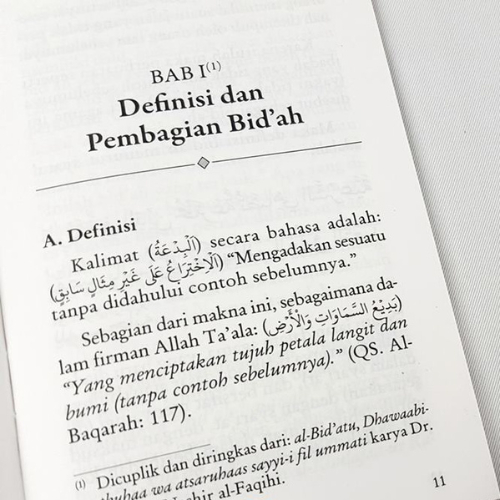 BAB I(1)
Definisi dan
Pembagian Bid'ah
A. Definisi
Kalimat (اَلْبِدْعَةُ) secara bahasa adalah:
(اَلْاِخْتِرَاعُ عَلَى غَيْرِ مِثَالٍ سَابِقٍ) “Mengadakan sesuatu
tanpa didahului contoh sebelumnya.”
Sebagian dari makna ini, sebagaimana da-
lam firman Allah Ta’ala: (بَدِيْعُ السَّمَاوَاتِ وَالْأَرْضِ)
“Yang menciptakan tujuh petala langit dan
bumi (tanpa contoh sebelumnya).” (QS. Al-
Baqarah: 117).
(1) Dicuplik dan diringkas dari: al-Bid’atu, Dhawaabi-
wa atsaruhaas sayyi-i fil ummati karya Dr.
al-Faqihi.
11